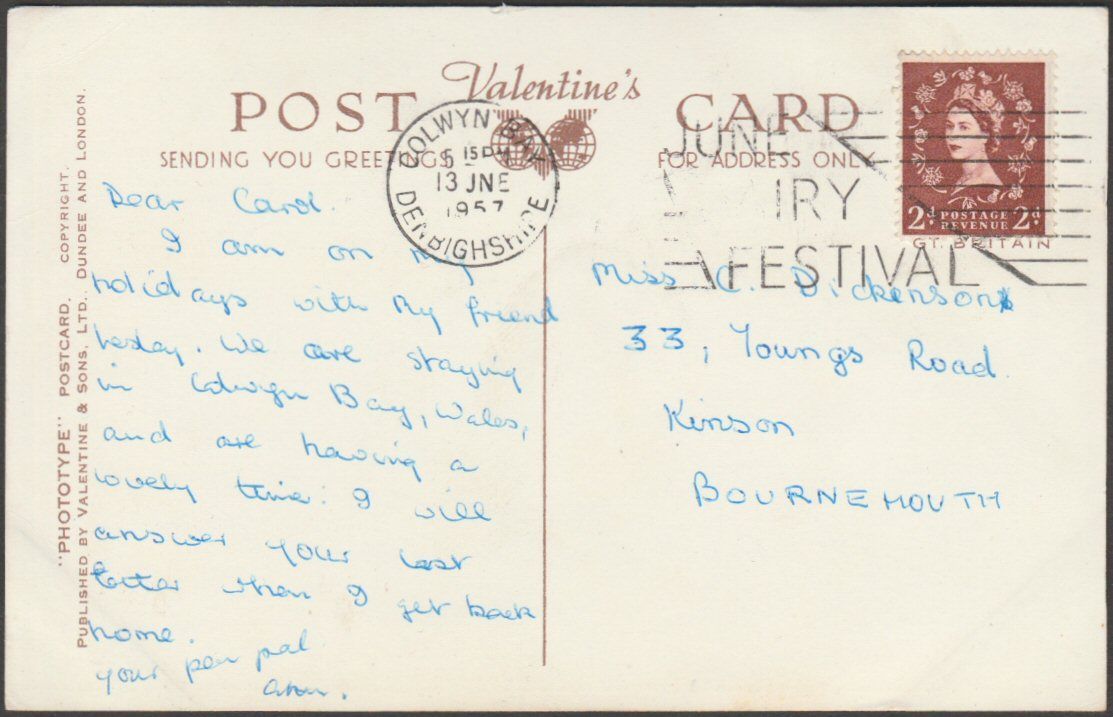 Valentine's
POST CARD
SENDING YOU GREETINGS
FOR ADDRESS ONLY
COLWYN BAY
5 15 PM
13 JNE
1957
DENBIGHSHIRE
JUNE
IRY
FESTIVAL
2d POSTAGE REVENUE 2d
GT. BRITAIN
"PHOTOTYPE" POSTCARD. COPYRIGHT.
PUBLISHED BY VALENTINE & SONS, LTD., DUNDEE AND LONDON.
Dear Carol.
I am on my
holidays with my friend
Lesley. We are staying
in Colwyn Bay, Wales,
and are having a
lovely time. I will
answer your last
letter when I get back
home.
your pen pal
Ann.
Miss C. Dickenson
33, Youngs Road.
Kinson
BOURNEMOUTH